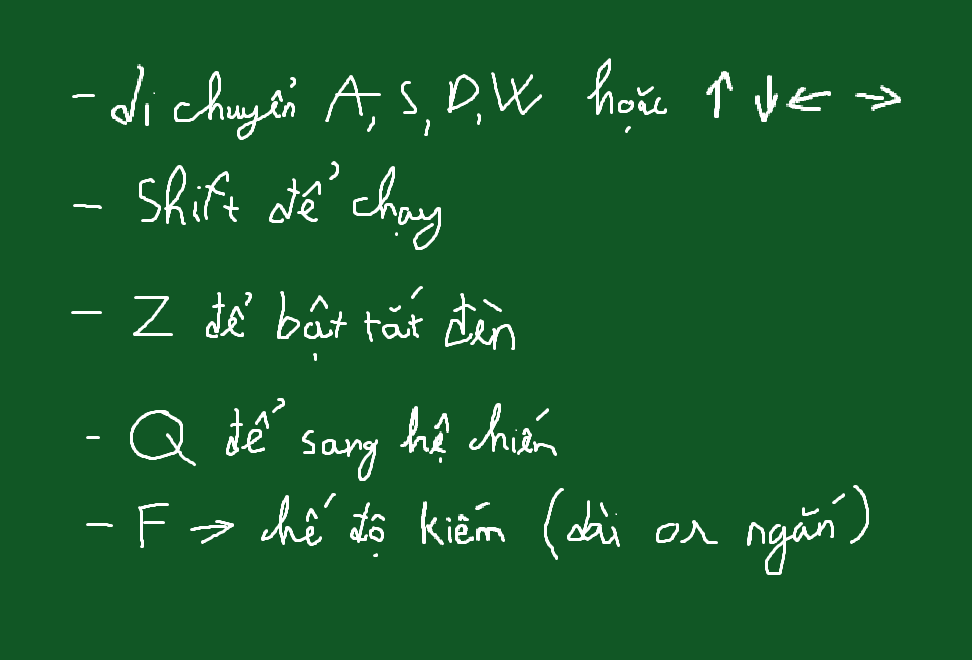 - di chuyển A, S, D, W hoặc ↑ ↓ ← →
- Shift để chạy
- Z để bật tắt đèn
- Q để sang hệ chiến
- F → chế độ kiếm (dài or ngắn)